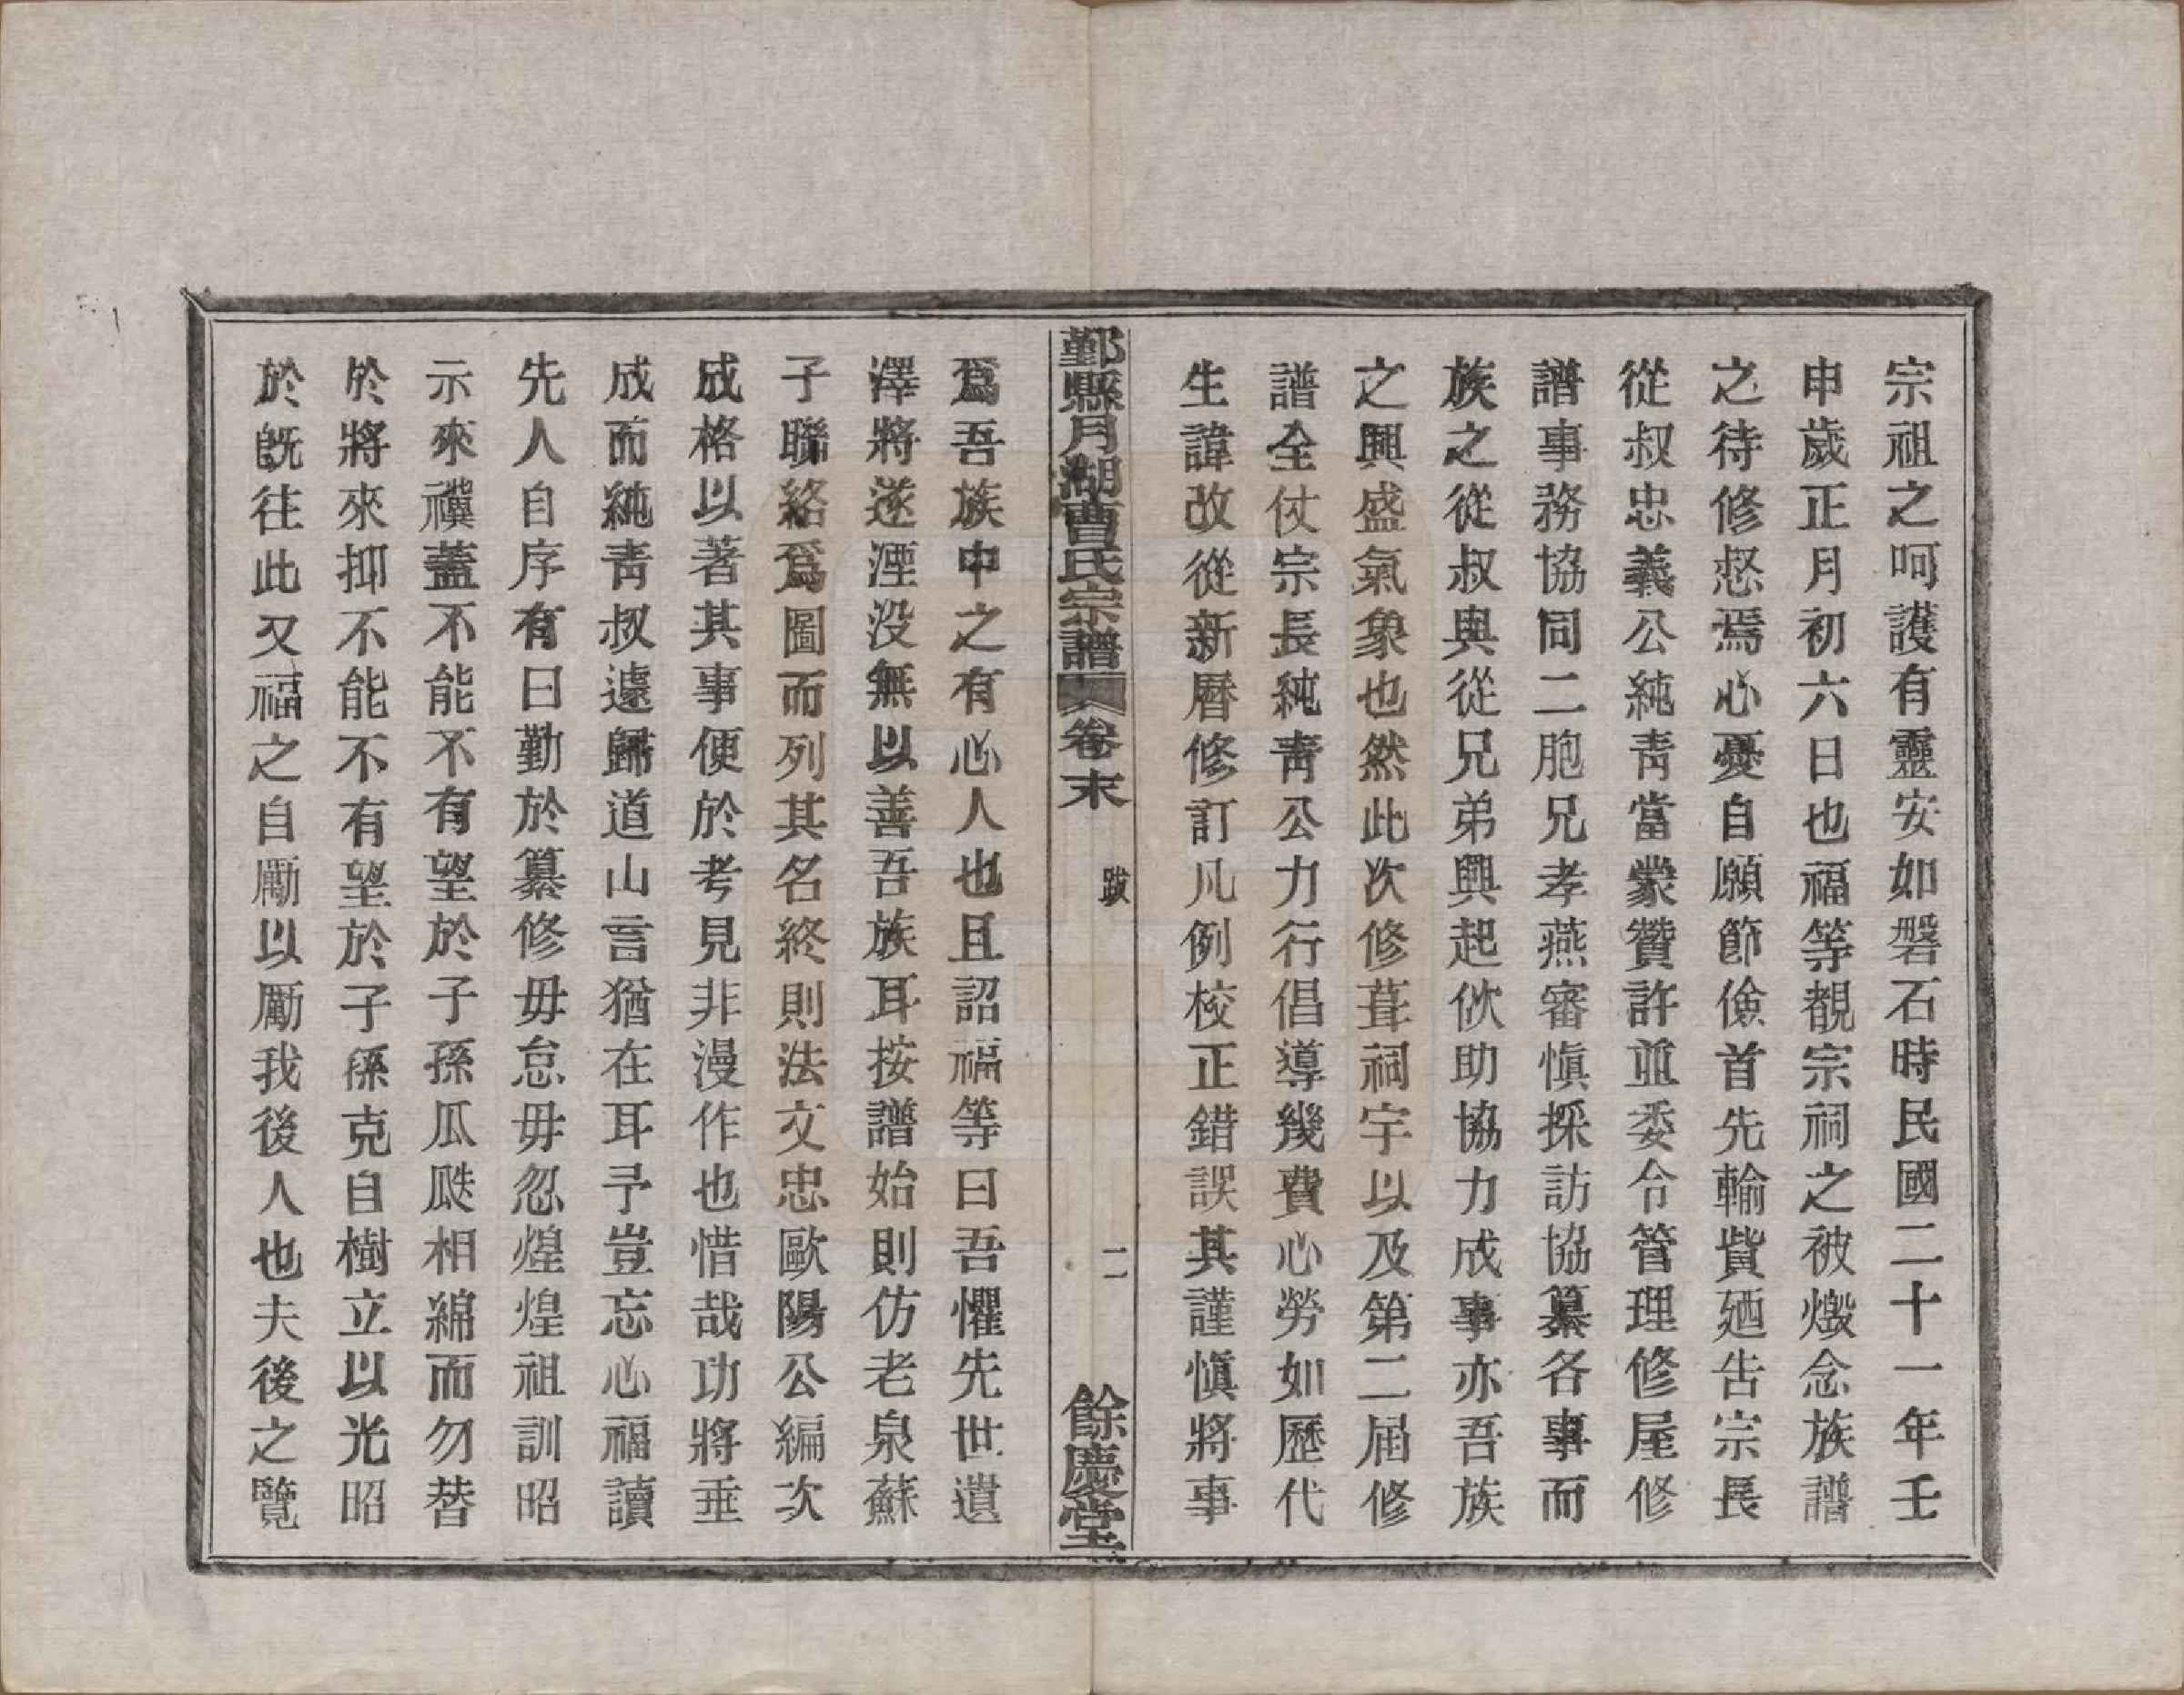 宗祖之呵護有靈安如磐石時民國二十一年壬
申歲正月初六日也福等覩宗祠之被燬念族譜
之待修惄焉心憂自願節儉首先輸貲廼告宗長
從叔忠義公純靑當蒙贊許並委令管理修屋修
譜事務協同二胞兄孝燕審愼採訪協纂各事而
族之從叔與從兄弟興起佽助協力成事亦吾族
之興盛氣象也然此次修葺祠宇以及第二届修
譜全仗宗長純靑公力行倡導幾費心勞如歷代
生諱改從新曆修訂凡例校正錯誤其謹愼將事
鄞縣月湖曹氏宗譜 卷末 跋 二 餘慶堂
爲吾族中之有心人也且詔福等曰吾懼先世遺
澤將遂湮没無以善吾族耳按譜始則仿老泉蘇
子聯絡爲圖而列其名終則法文忠歐陽公編次
成格以著其事便於考見非漫作也惜哉功將垂
成而純靑叔遽歸道山言猶在耳予豈忘心福讀
先人自序有曰勤於纂修毋怠毋忽煌煌祖訓昭
示來禩蓋不能不有望於子孫瓜瓞相綿而勿替
於將來抑不能不有望於子孫克自樹立以光昭
於旣往此又福之自勵以勵我後人也夫後之覽